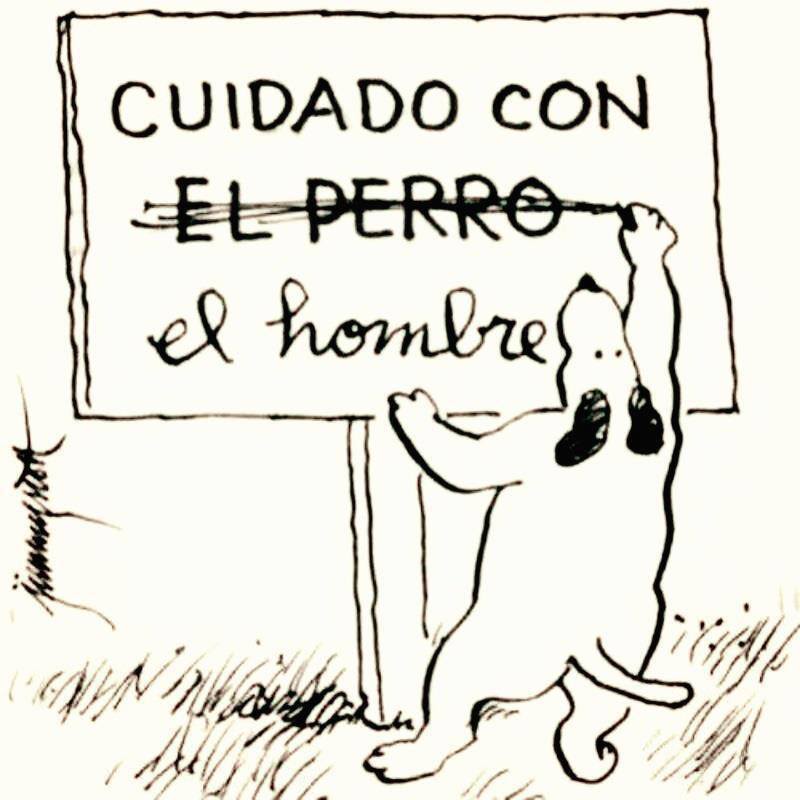 CUIDADO CON
EL PERRO
el hombre